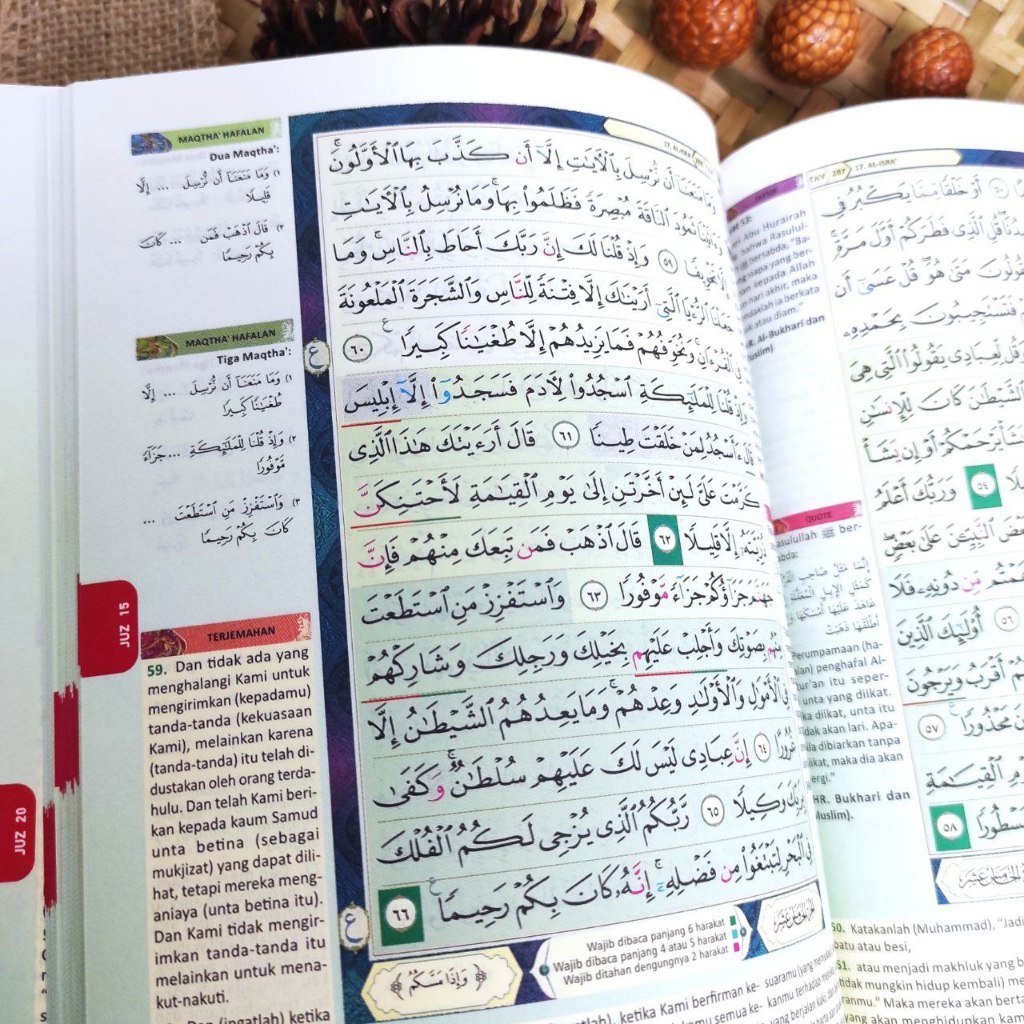 MAQTHA' HAFALAN
Dua Maqtha':
١) وَمَا مَنَعَنَآ أَن نُّرْسِلَ ... إِلَّا
قَلِيلًا
٢) قَالَ ٱذْهَبْ فَمَن ... كَانَ
بِكُمْ رَحِيمًا
MAQTHA' HAFALAN
Tiga Maqtha':
١) وَمَا مَنَعَنَآ أَن نُّرْسِلَ ... إِلَّا
طُغْيَٰنًا كَبِيرًا
٢) وَإِذْ قُلْنَا لِلْمَلَٰٓئِكَةِ ... جَزَآءً
مَّوْفُورًا
٣) وَٱسْتَفْزِزْ مَنِ ٱسْتَطَعْتَ ...
كَانَ بِكُمْ رَحِيمًا
JUZ 15
JUZ 20
TERJEMAHAN
59. Dan tidak ada yang
menghalangi Kami untuk
mengirimkan (kepadamu)
tanda-tanda (kekuasaan
Kami), melainkan karena
(tanda-tanda) itu telah di-
dustakan oleh orang terda-
hulu. Dan telah Kami beri-
kan kepada kaum Samud
unta betina (sebagai
mukjizat) yang dapat dili-
hat, tetapi mereka meng-
aniaya (unta betina itu).
Dan Kami tidak mengir-
imkan tanda-tanda itu
melainkan untuk mena-
kut-nakuti.
Dan (ingatlah) ketika
وَمَا مَنَعَنَآ أَن نُّرْسِلَ بِٱلْءَايَٰتِ إِلَّآ أَن كَذَّبَ بِهَا ٱلْأَوَّلُونَ ۚ
وَءَاتَيْنَا ثَمُودَ ٱلنَّاقَةَ مُبْصِرَةً فَظَلَمُوا۟ بِهَا ۚ وَمَا نُرْسِلُ بِٱلْءَايَٰتِ
إِلَّا تَخْوِيفًا ٥٩ وَإِذْ قُلْنَا لَكَ إِنَّ رَبَّكَ أَحَاطَ بِٱلنَّاسِ ۚ وَمَا
جَعَلْنَا ٱلرُّءْيَا ٱلَّتِىٓ أَرَيْنَٰكَ إِلَّا فِتْنَةً لِّلنَّاسِ وَٱلشَّجَرَةَ ٱلْمَلْعُونَةَ
فِى ٱلْقُرْءَانِ ۚ وَنُخَوِّفُهُمْ فَمَا يَزِيدُهُمْ إِلَّا طُغْيَٰنًا كَبِيرًا ٦٠
وَإِذْ قُلْنَا لِلْمَلَٰٓئِكَةِ ٱسْجُدُوا۟ لِءَادَمَ فَسَجَدُوٓا۟ إِلَّآ إِبْلِيسَ
قَالَ ءَأَسْجُدُ لِمَنْ خَلَقْتَ طِينًا ٦١ قَالَ أَرَءَيْتَكَ هَٰذَا ٱلَّذِى
كَرَّمْتَ عَلَىَّ لَئِنْ أَخَّرْتَنِ إِلَىٰ يَوْمِ ٱلْقِيَٰمَةِ لَأَحْتَنِكَنَّ
ذُرِّيَّتَهُۥٓ إِلَّا قَلِيلًا ٦٢ قَالَ ٱذْهَبْ فَمَن تَبِعَكَ مِنْهُمْ فَإِنَّ
جَهَنَّمَ جَزَآؤُكُمْ جَزَآءً مَّوْفُورًا ٦٣ وَٱسْتَفْزِزْ مَنِ ٱسْتَطَعْتَ
مِنْهُم بِصَوْتِكَ وَأَجْلِبْ عَلَيْهِم بِخَيْلِكَ وَرَجِلِكَ وَشَارِكْهُمْ
فِى ٱلْأَمْوَٰلِ وَٱلْأَوْلَٰدِ وَعِدْهُمْ ۚ وَمَا يَعِدُهُمُ ٱلشَّيْطَٰنُ إِلَّا
غُرُورًا ٦٤ إِنَّ عِبَادِى لَيْسَ لَكَ عَلَيْهِمْ سُلْطَٰنٌ ۚ وَكَفَىٰ
بِرَبِّكَ وَكِيلًا ٦٥ رَّبُّكُمُ ٱلَّذِى يُزْجِى لَكُمُ ٱلْفُلْكَ
فِى ٱلْبَحْرِ لِتَبْتَغُوا۟ مِن فَضْلِهِۦٓ ۚ إِنَّهُۥ كَانَ بِكُمْ رَحِيمًا ٦٦
وَإِذَا مَسَّكُمُ
Wajib dibaca panjang 6 harakat
Wajib dibaca panjang 4 atau 5 harakat
Wajib ditahan dengungnya 2 harakat
٢٨٧ 287 17. AL-ISRA'
Abu Hurairah
bersabda, "Ba-
kepada Allah
hari akhir, maka
ia berkata
atau diam."
Al-Bukhari dan
QUOTE
Rasulullah ﷺ ber-
Perumpamaan (ha-
penghafal Al-
Qur'an itu seper-
unta yang diikat.
diikat, unta itu
tidak akan lari. Apa-
bila dibiarkan tanpa
diikat, maka dia akan
pergi."
HR. Bukhari dan
Muslim).
أَوْ خَلْقًا مِّمَّا يَكْبُرُ فِى
قُلِ ٱلَّذِى فَطَرَكُمْ أَوَّلَ مَرَّةٍ ۚ
مَتَىٰ هُوَ ۖ قُلْ عَسَىٰٓ أَن
فَتَسْتَجِيبُونَ بِحَمْدِهِۦ
لِّعِبَادِى يَقُولُوا۟ ٱلَّتِى هِىَ
ٱلشَّيْطَٰنَ كَانَ لِلْإِنسَٰنِ
يَرْحَمْكُمْ أَوْ إِن يَشَأْ
٥٤ وَرَبُّكَ أَعْلَمُ
بَعْضَ ٱلنَّبِيِّۦنَ عَلَىٰ بَعْضٍ ۖ
زَعَمْتُم مِّن دُونِهِۦ فَلَا
٥٦ أُو۟لَٰٓئِكَ ٱلَّذِينَ
أَقْرَبُ وَيَرْجُونَ
مَحْذُورًا ٥٧
ٱلْقِيَٰمَةِ
مَسْطُورًا ٥٨
50. Katakanlah (Muhammad), "Jadi
batu atau besi,
51. atau menjadi makhluk yang b
tidak mungkin hidup kembali) me
Maka mereka akan berta
yang akan menghidupkan kam
ketika Kami berfirman ke-